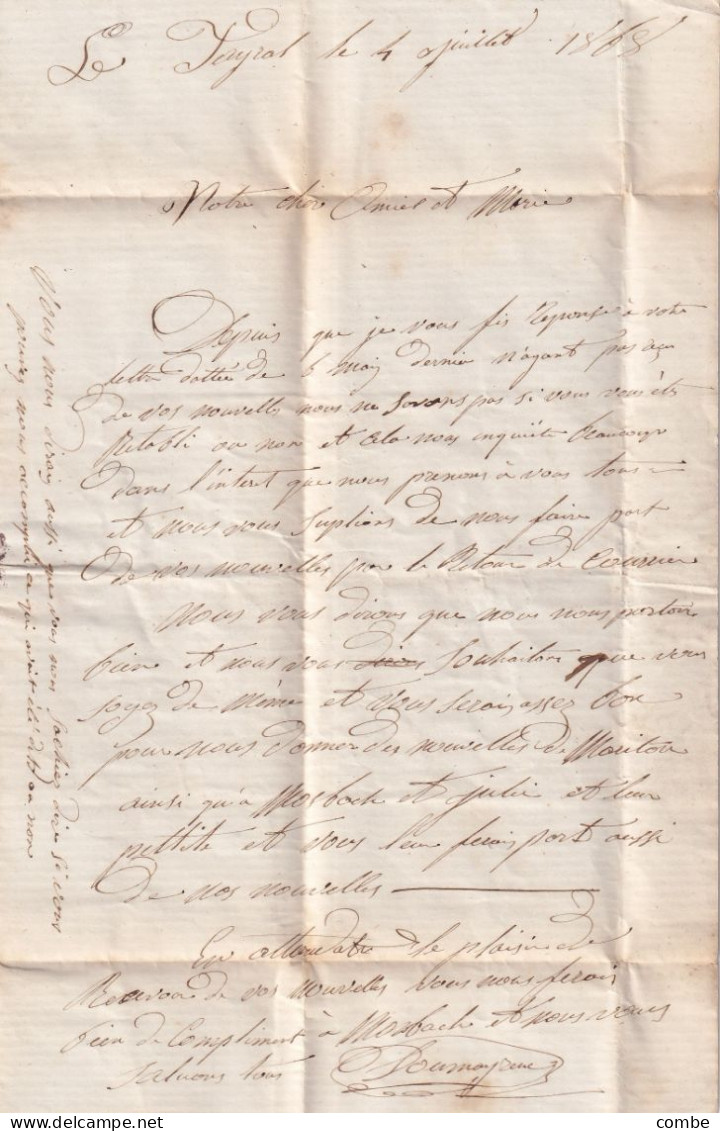 Le Teyral le 4 Juillet 1868
Notre cher Amiel et Marie
Depuis que je vous fis Reponse à votre
lettre dattée de 6 may dernier n'ayant pas
de vos nouvelles nous ne savons pas si vous vous ets
Retabli ou non et cela nous inquiéte Beaucoup
dans l'interet que nous prenons à vous tous
et nous vous suplions de nous faire part
de vos nouvelles par le Retour de Courrier
Nous vous dirons que nous nous portons
bien et nous vous souhaitons que vous
soyez de même et vous serais assez bon
pour nous donner des nouvelles de
ainsi qu'à Mosbach et julie et leur
pettite et vous leur ferais part aussi
de nos nouvelles
En attendant le plaisir de
Recevoir de vos nouvelles vous nous ferais
bien de Compliment à Mosbach et nous vous
saluons tous
Vous nous dirais aussi que vous nous
pouvez nous accomplir ce qui avait été dit ou non
combe
© delcampe.net